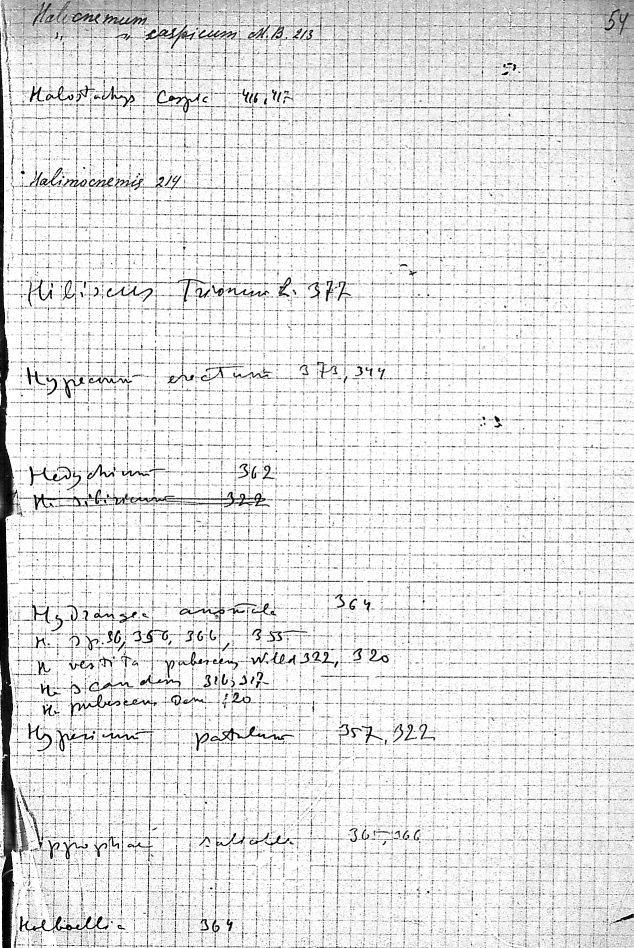 54
Halocnemum
" " caspicum M.B. 213
Halostachys Caspic 416, 417
Halimocnemis 214
Hibiscus Trionum L. 377
Hypecoum erectum 373, 344
Hedychium 362
H. sibiricum 322
Hydrangea anomala 364
H. sp. 36, 356, 366, 355
H vestita pubescens Willd 322, 320
H. scandens 316, 317
H. pubescens 320
Hypericum patulum 357, 322
ippophaë 365, 366
Holboellia 364